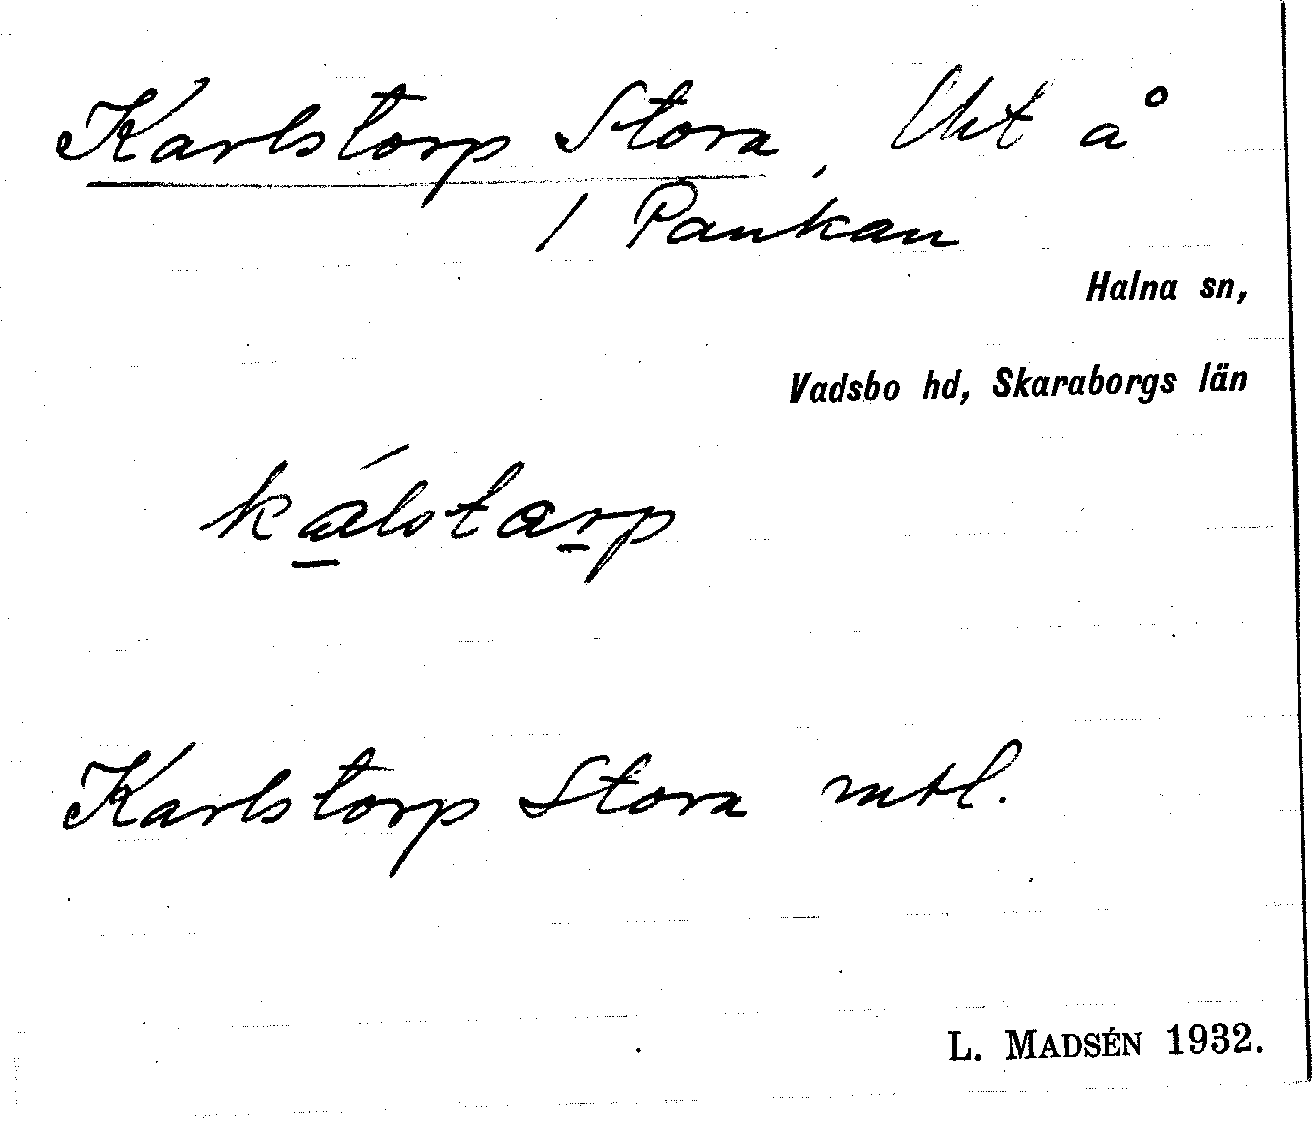 Karlstorp Stora, Utit å
1 Pankan
Halna sn,
Vadsbo hd, Skaraborgs län
kálstarp
Karlstorp Stora mtl.
L. MADSÉN 1932.